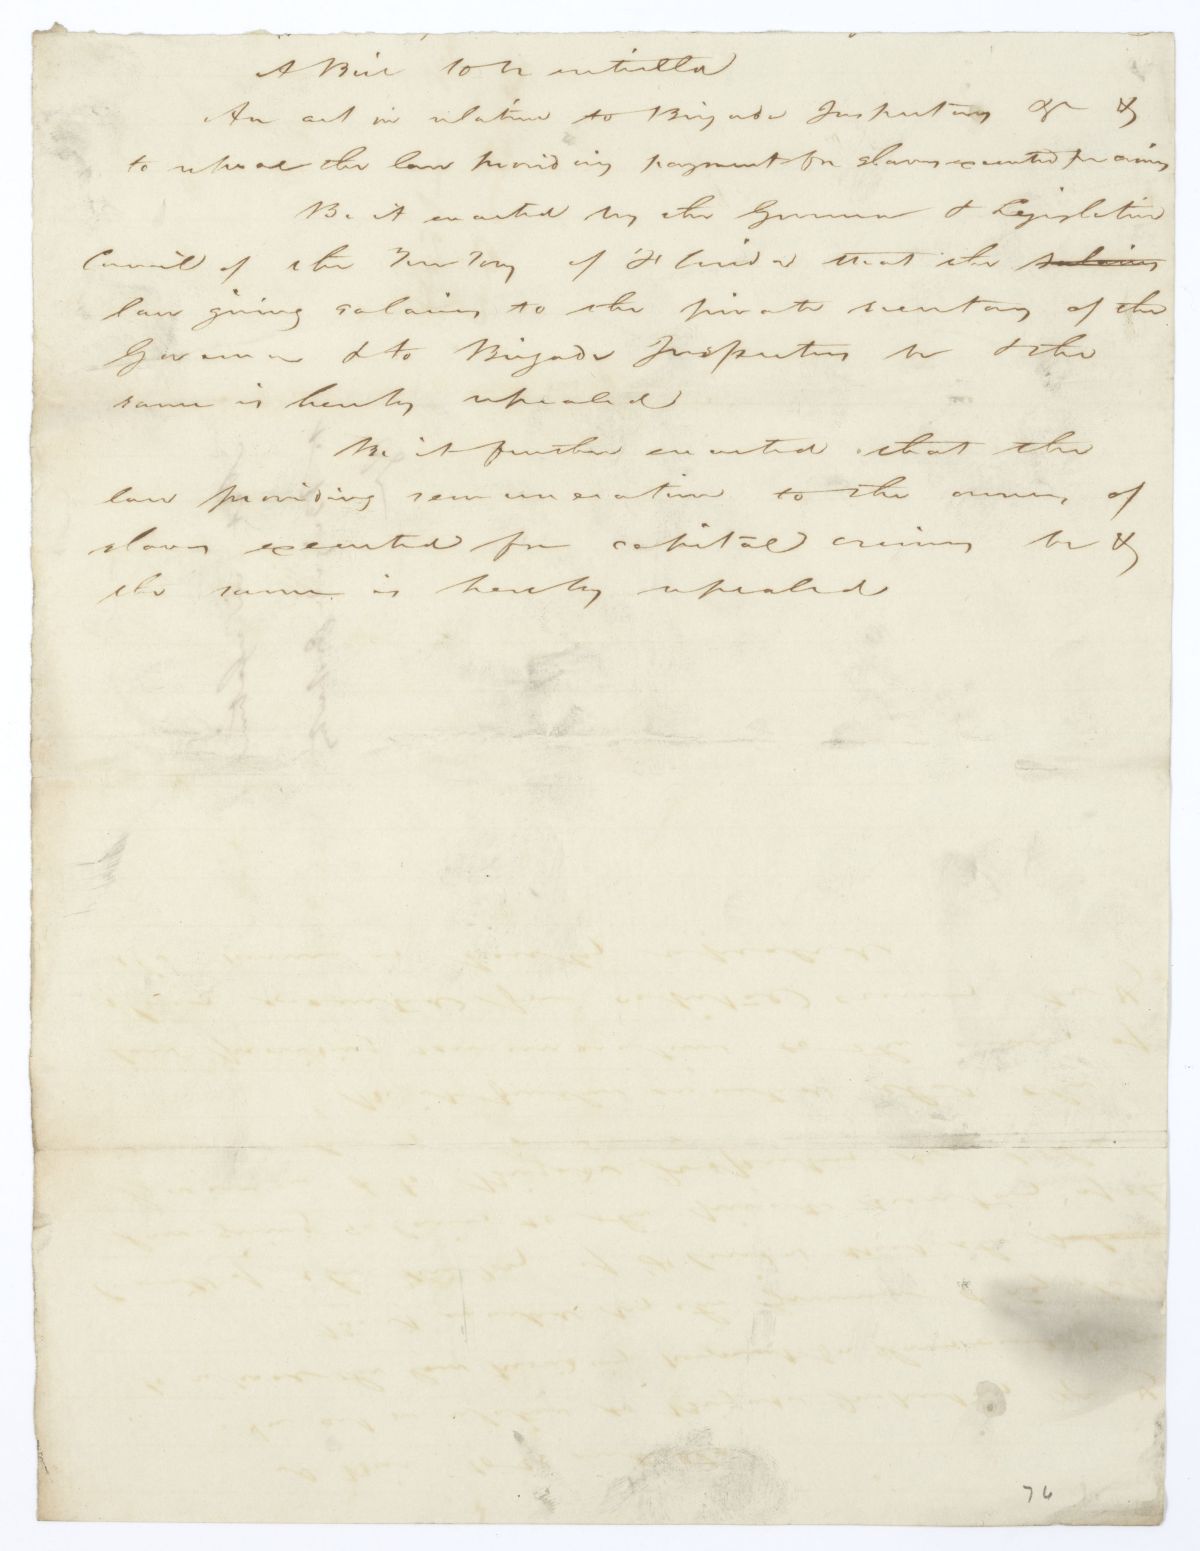 A Bill to be entitled
An act in relation to Brigade Inspectors &c &
to repeal the law providing payment for slaves executed for crimes
Be it enacted by the Governor & Legislative
Council of the Territory of Florida that the salaries
law giving salaries to the private secretary of the
Governor & to Brigade Inspectors be & the
same is hereby repealed
Be it further enacted that the
law providing remuneration to the owners of
slaves executed for capital crimes be &
the same is hereby repealed
76